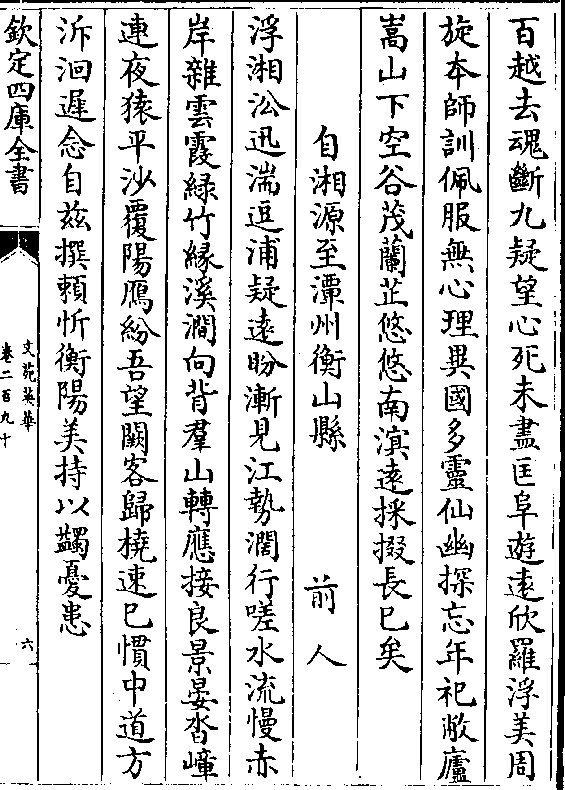 百越去魂斷九疑望心死未盡匡阜遊逺欣羅浮美周
旋本師訓佩服無心理異國多靈仙幽探忘年祀敝廬
嵩山下空谷茂蘭芷悠悠南溟逺採掇長已矣
自湘源至潭州衡山縣　前人
浮湘沿迅湍逗浦疑逺盼漸見江勢濶行嗟水流慢赤
岸雜雲霞緑竹縁溪澗向背羣山轉應接良景晏沓嶂
連夜猿平沙覆陽鴈紛吾望闕客歸橈速已慣中道方
泝洄遲念自兹撰頼忻衡陽美持以蠲憂患
欽定四庫全書
文苑英華
卷二百九十
六